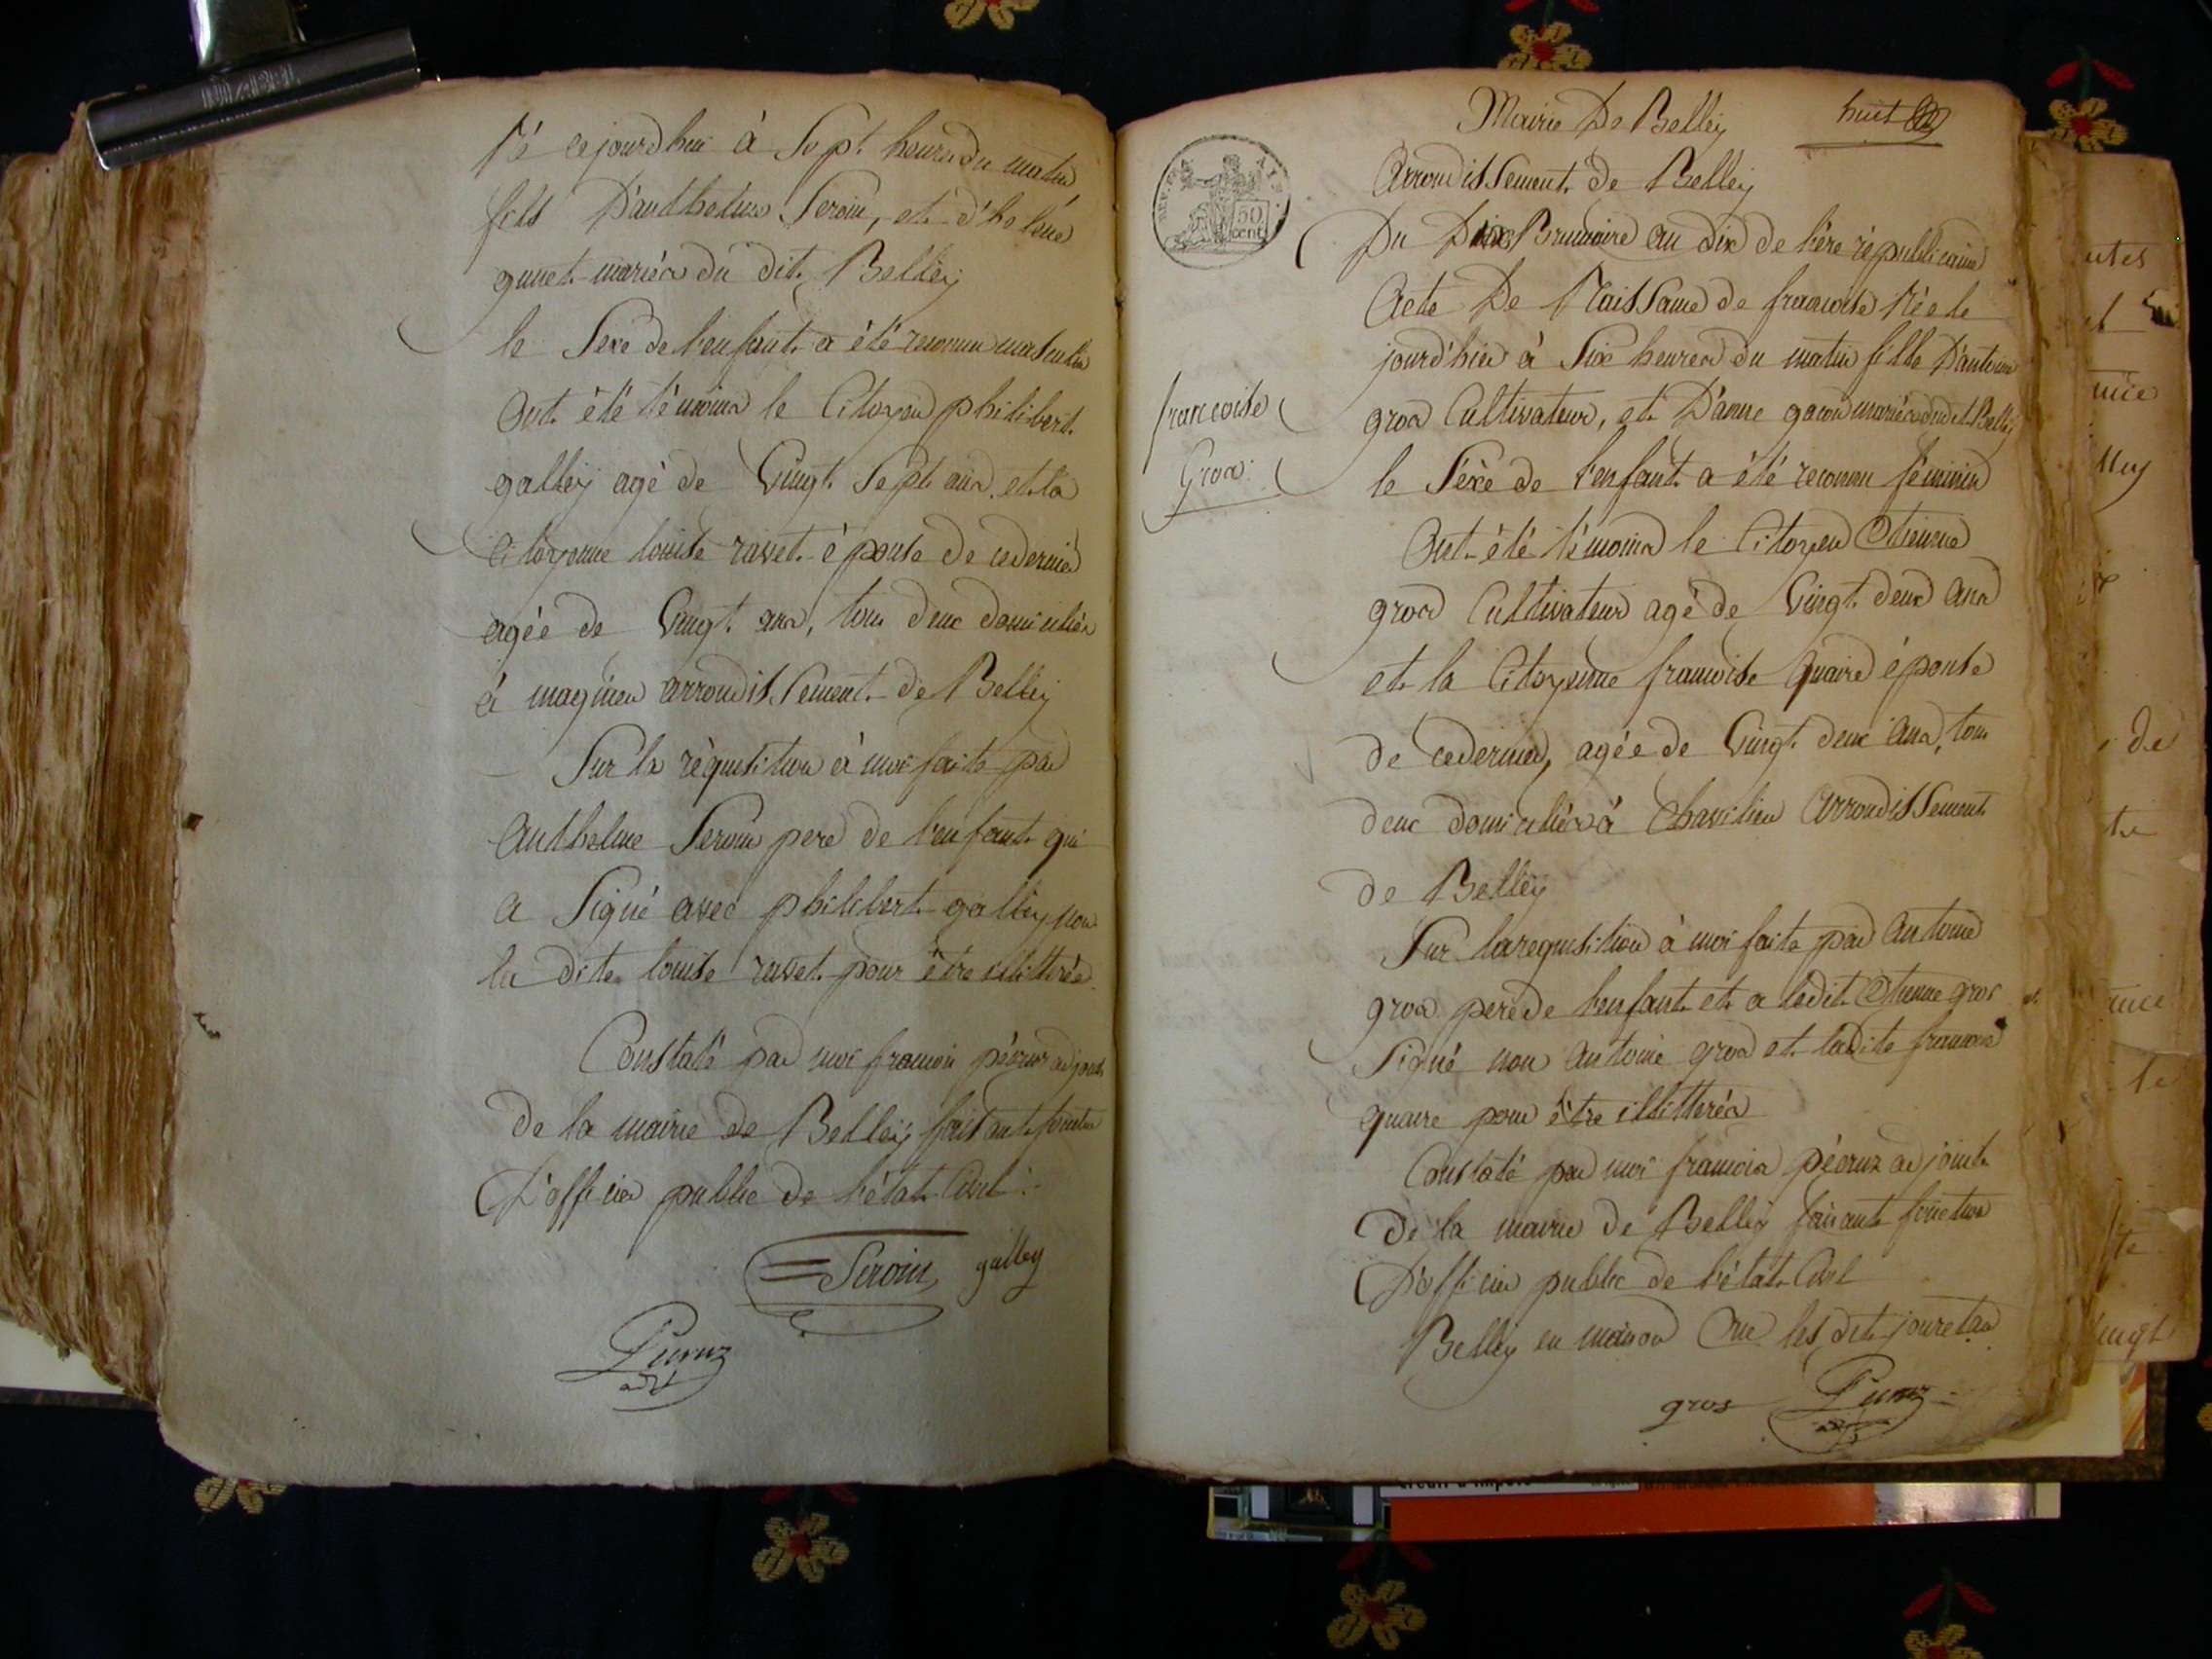 Né cejourd'hui à Sept heures du matin
fils D'anthelme Seroin, et d'helene
gunet mariés du dit Belleÿ
le Sexe de l'enfant a été reconnu masculin
Ont été témoins le Citoyen philibert
galleÿ agé de Vingt Sept ans et la
Citoyenne louise ravet épouse de cedernier
agée de Vingt ans, tous deux domiciliés
à magnieu arrondissement de Belleÿ
Sur la réquisition à moi faite par
Anthelme Seroin pere de l'enfant qui
a Signé avec philibert galley non
la dite louise ravet pour être illitterée
Constaté par moi francois pécruz adjoint
de la mairie de Belleÿ faisant fonction
D'officier public de l'état Civil
Seroin galley
Pecruz
adjt
Mairie De Belleÿ
huit
Arrondissement de Belleÿ
REP. FRA
50
cent
Du Dix Brumaire an dix de l'ère républicaine
Acte De Naissance de francoise Née le
jourd'hui à Six heures du matin fille D'antoine
francoise
Gros
gros Cultivateur, et D'anne gacon mariés dudit Belleÿ
le Séxe de l'enfant a été reconnu féminin
Ont été témoins le Citoyen Etienne
gros Cultivateur agé de Vingt deux ans
et la Citoyenne francoise quaire épouse
de cedernier, agée de Vingt deux ans, tous
deux domiciliés à Chavilieu Arrondissement
de Belleÿ
Sur la requisition à moi faite par Antoine
gros pere de l'enfant et a ledit Etienne gros
Signé non Antoine gros et ladite francoise
quaire pour être illitterés
Constaté par moi francois pécruz adjoint
De la mairie de Belleÿ faisant fonction
D'officier public de l'état Civil
Belleÿ en maison Cne les dit jour et an
gros Pecruz
adjt
utes
et
de
te
le
Vingt